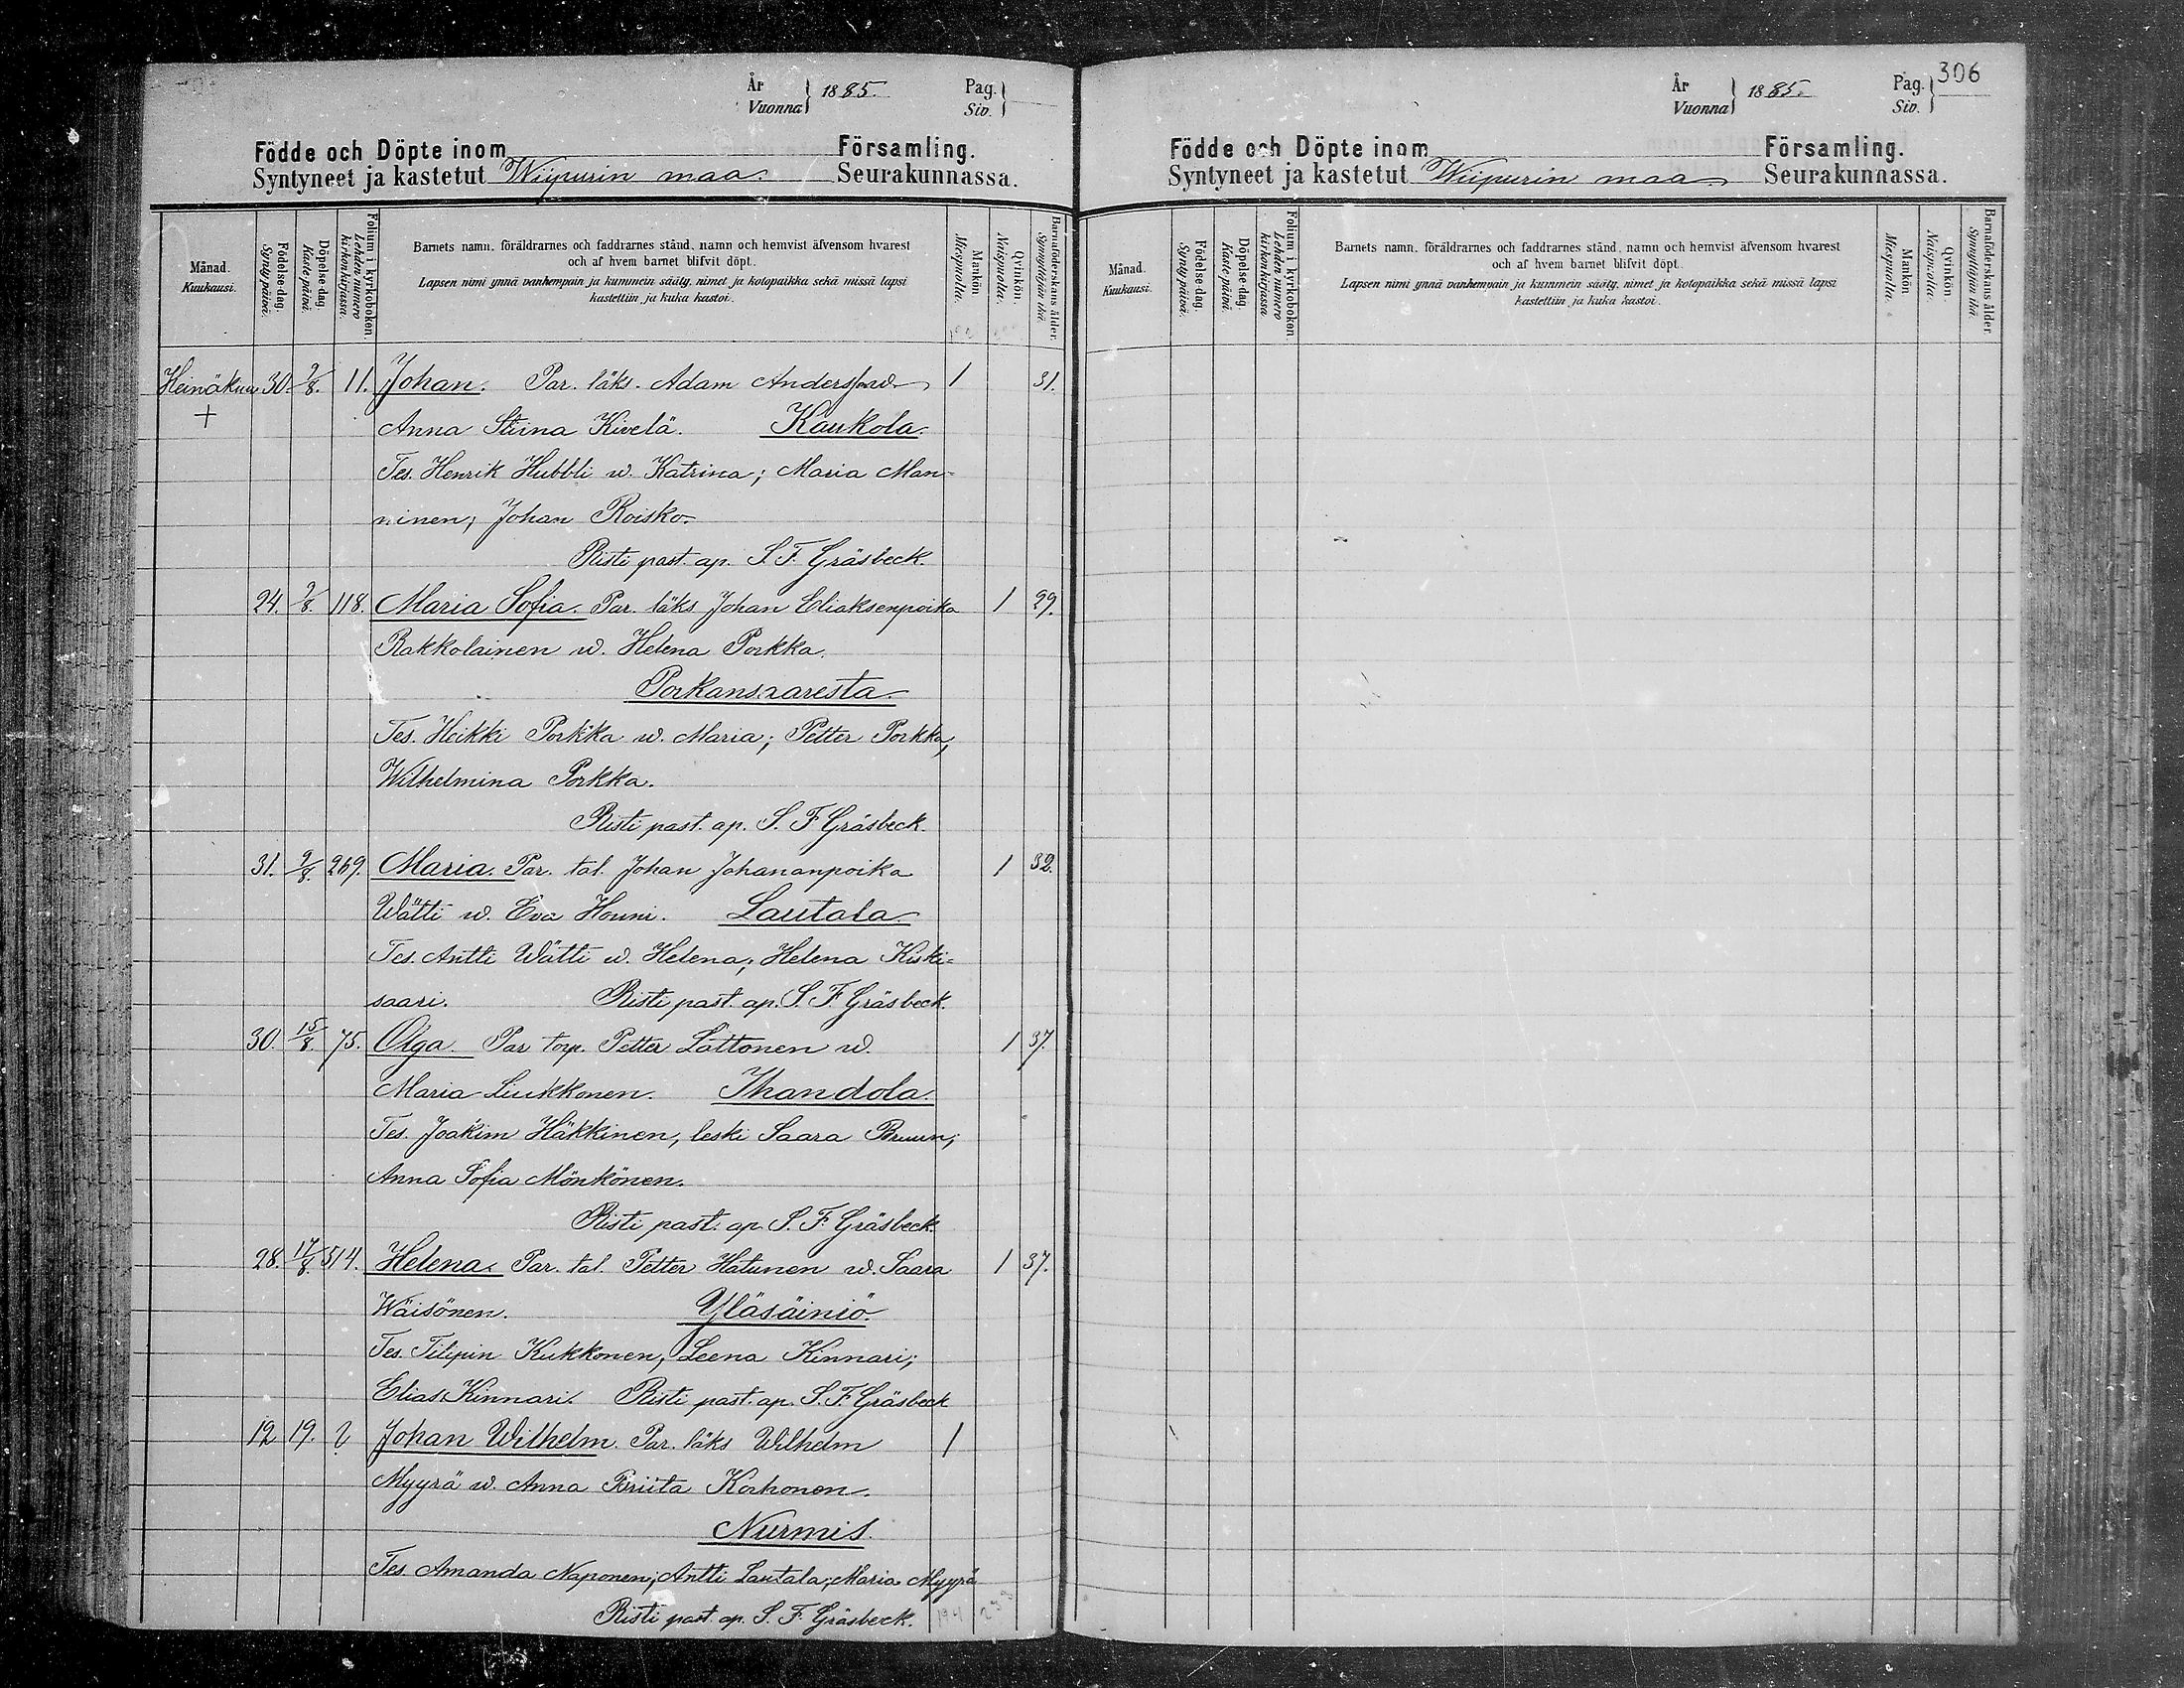 År
Vuonna } 1885.
Pag.
Siv. }
Födde och Döpte inom Församling.
Syntyneet ja kastetut Wiipurin maa. Seurakunnassa.
Månad.
Kuukausi.
Födelse-dag.
Synty päivä.
Döpelse-dag.
Kaste päivä.
Folium i kyrkoboken.
Lehden numero kirkonkirjassa.
Barnets namn, föräldrarnes och faddrarnes stånd, namn och hemvist äfvensom hvarest
och af hvem barnet blifvit döpt.
Lapsen nimi ynnä vanhempain ja kummein sääty, nimet ja kotopaikka sekä missä lapsi
kastettiin ja kuka kastoi.
Mankön
Miespuolia.
Qvinkön.
Naispuolia.
Barnaföderskans ålder.
Synnyttäjän ikä.
Heinäkuu 30. 9/8. 11. Johan. Par. läks. Adam 1 31.
+ Anna Stiina Kivelä. Kaukola.
Tes. Henrik Hubbli w. Katrina; Maria Man-
ninen; Johan Roisko.
Risti past. ap. S. F. Gräsbeck.
24. 9/8. 118. Maria Sofia. Par. läks Johan Eliaksenpoika 1 29.
Rakkolainen w. Helena Porkka.
Porkansaaresta.
Tes. Heikki Porkka w. Maria; Petter Porkka,
Wilhelmina Porkka.
Risti past. ap. S. F Gräsbeck.
31. 9/8. 269. Maria. Par. tal. Johan Johananpoika 1 32.
Wätti w. Eva Houni. Lautala.
Tes. Antti Wätti w. Helena; Helena Kiski-
saari. Risti past. ap. S. F. Gräsbeck.
30. 15/8. 75. Olga. Par torp. Petter Lättonen w. 1 37.
Maria Liukkonen. Ihandola.
Tes. Joakim Häkkinen, leski Saara Bruun;
Anna Sofia Mönkönen.
Risti past. ap. S. F. Gräsbeck.
28. 17/8. 514. Helena. Par. tal. Petter Hatunen w. Saara 1 37.
Wäisönen. Yläsäiniö.
Tes. Filipin Kukkonen, Leena Kinnari;
Elias Kinnari. Risti past. ap. S. F. Gräsbeck
12 19. ? Johan Wilhelm. Par. läks Wilhelm 1
Myyrä w. Anna Briita Korhonen.
Nurmis.
Tes. Amanda Naponen; Antti Lautala; Maria Myyrä
Risti past. ap. S. F. Gräsbeck. 194
År
Vuonna } 1885.
Pag.
Siv. } 306
Födde och Döpte inom Församling.
Syntyneet ja kastetut Wiipurin maa. Seurakunnassa.
Månad.
Kuukausi.
Födelse-dag.
Synty päivä.
Döpelse-dag.
Kaste päivä.
Folium i kyrkoboken.
Lehden numero kirkonkirjassa
Barnets namn, föräldrarnes och faddrarnes stånd, namn och hemvist äfvensom hvarest
och af hvem barnet blifvit döpt.
Lapsen nimi ynnä vanhempain ja kummein sääty, nimet ja kotopaikka sekä missä lapsi
kastettiin ja kuka kastoi.
Mankön
Miespuolia.
Qvinkön.
Naispuolia.
Barnaföderskans ålder.
Synnyttäjän ikä.